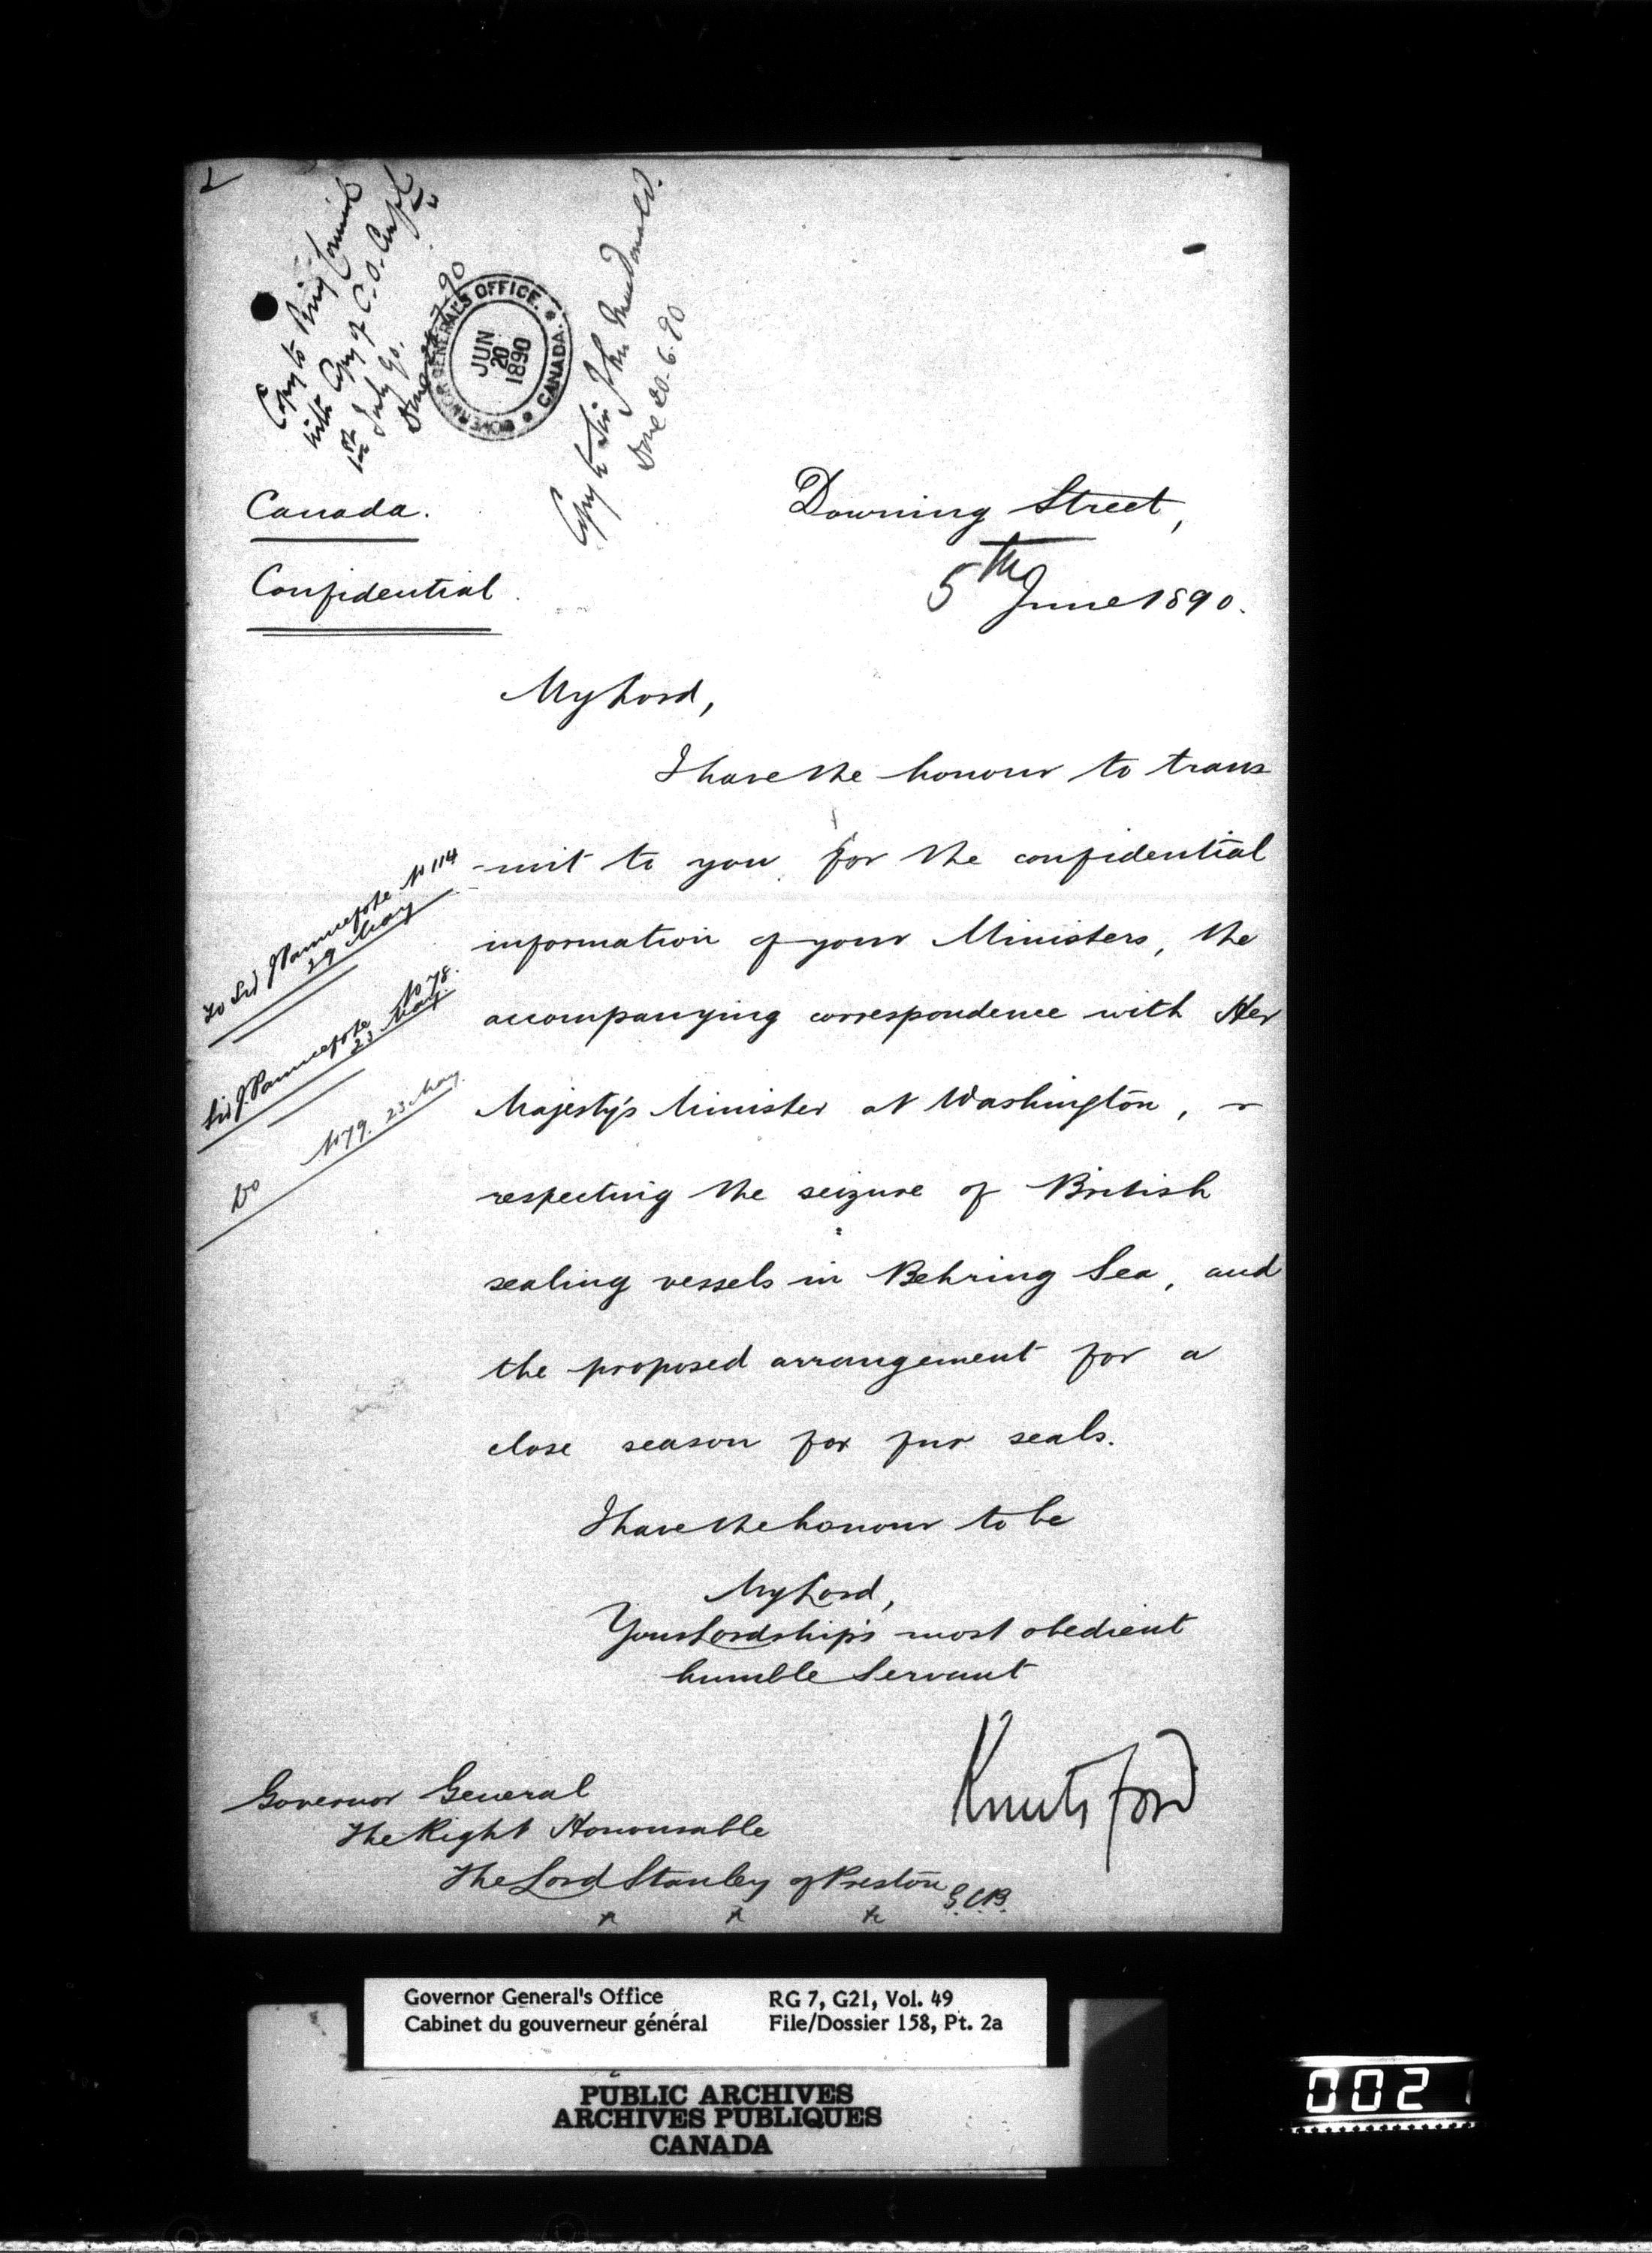 Copy to Privy Council
with Copy of C.O. Confl
1st July 90.
GOVERNOR GENERAL'S OFFICE.
CANADA.
JUN
20
1890
Copy to Sir John MacDonald.
Done 20.6.90
Canada.
Confidential.
Downing Street,
5th June 1890.
My Lord,
I have the honour to trans
-mit to you, for the confidential
information of your Ministers, the
accompanying correspondence with Her
Majesty's Minister at Washington,
respecting the seizure of British
sealing vessels in Behring Sea, and
the proposed arrangement for a
close season for fur seals.
To Sir J Pauncefote No 114
29 May
Sir J. Pauncefote No 78.
23 May.
Do No 79. 23 May.
I have the honour to be
My Lord,
Your Lordship's most obedient
humble Servant
Knutsford
Governor General
The Right Honourable
The Lord Stanley of Preston G.C.B.
Governor General's Office
Cabinet du gouverneur général
RG 7, G21, Vol. 49
File/Dossier 158, Pt. 2a
PUBLIC ARCHIVES
ARCHIVES PUBLIQUES
CANADA
002